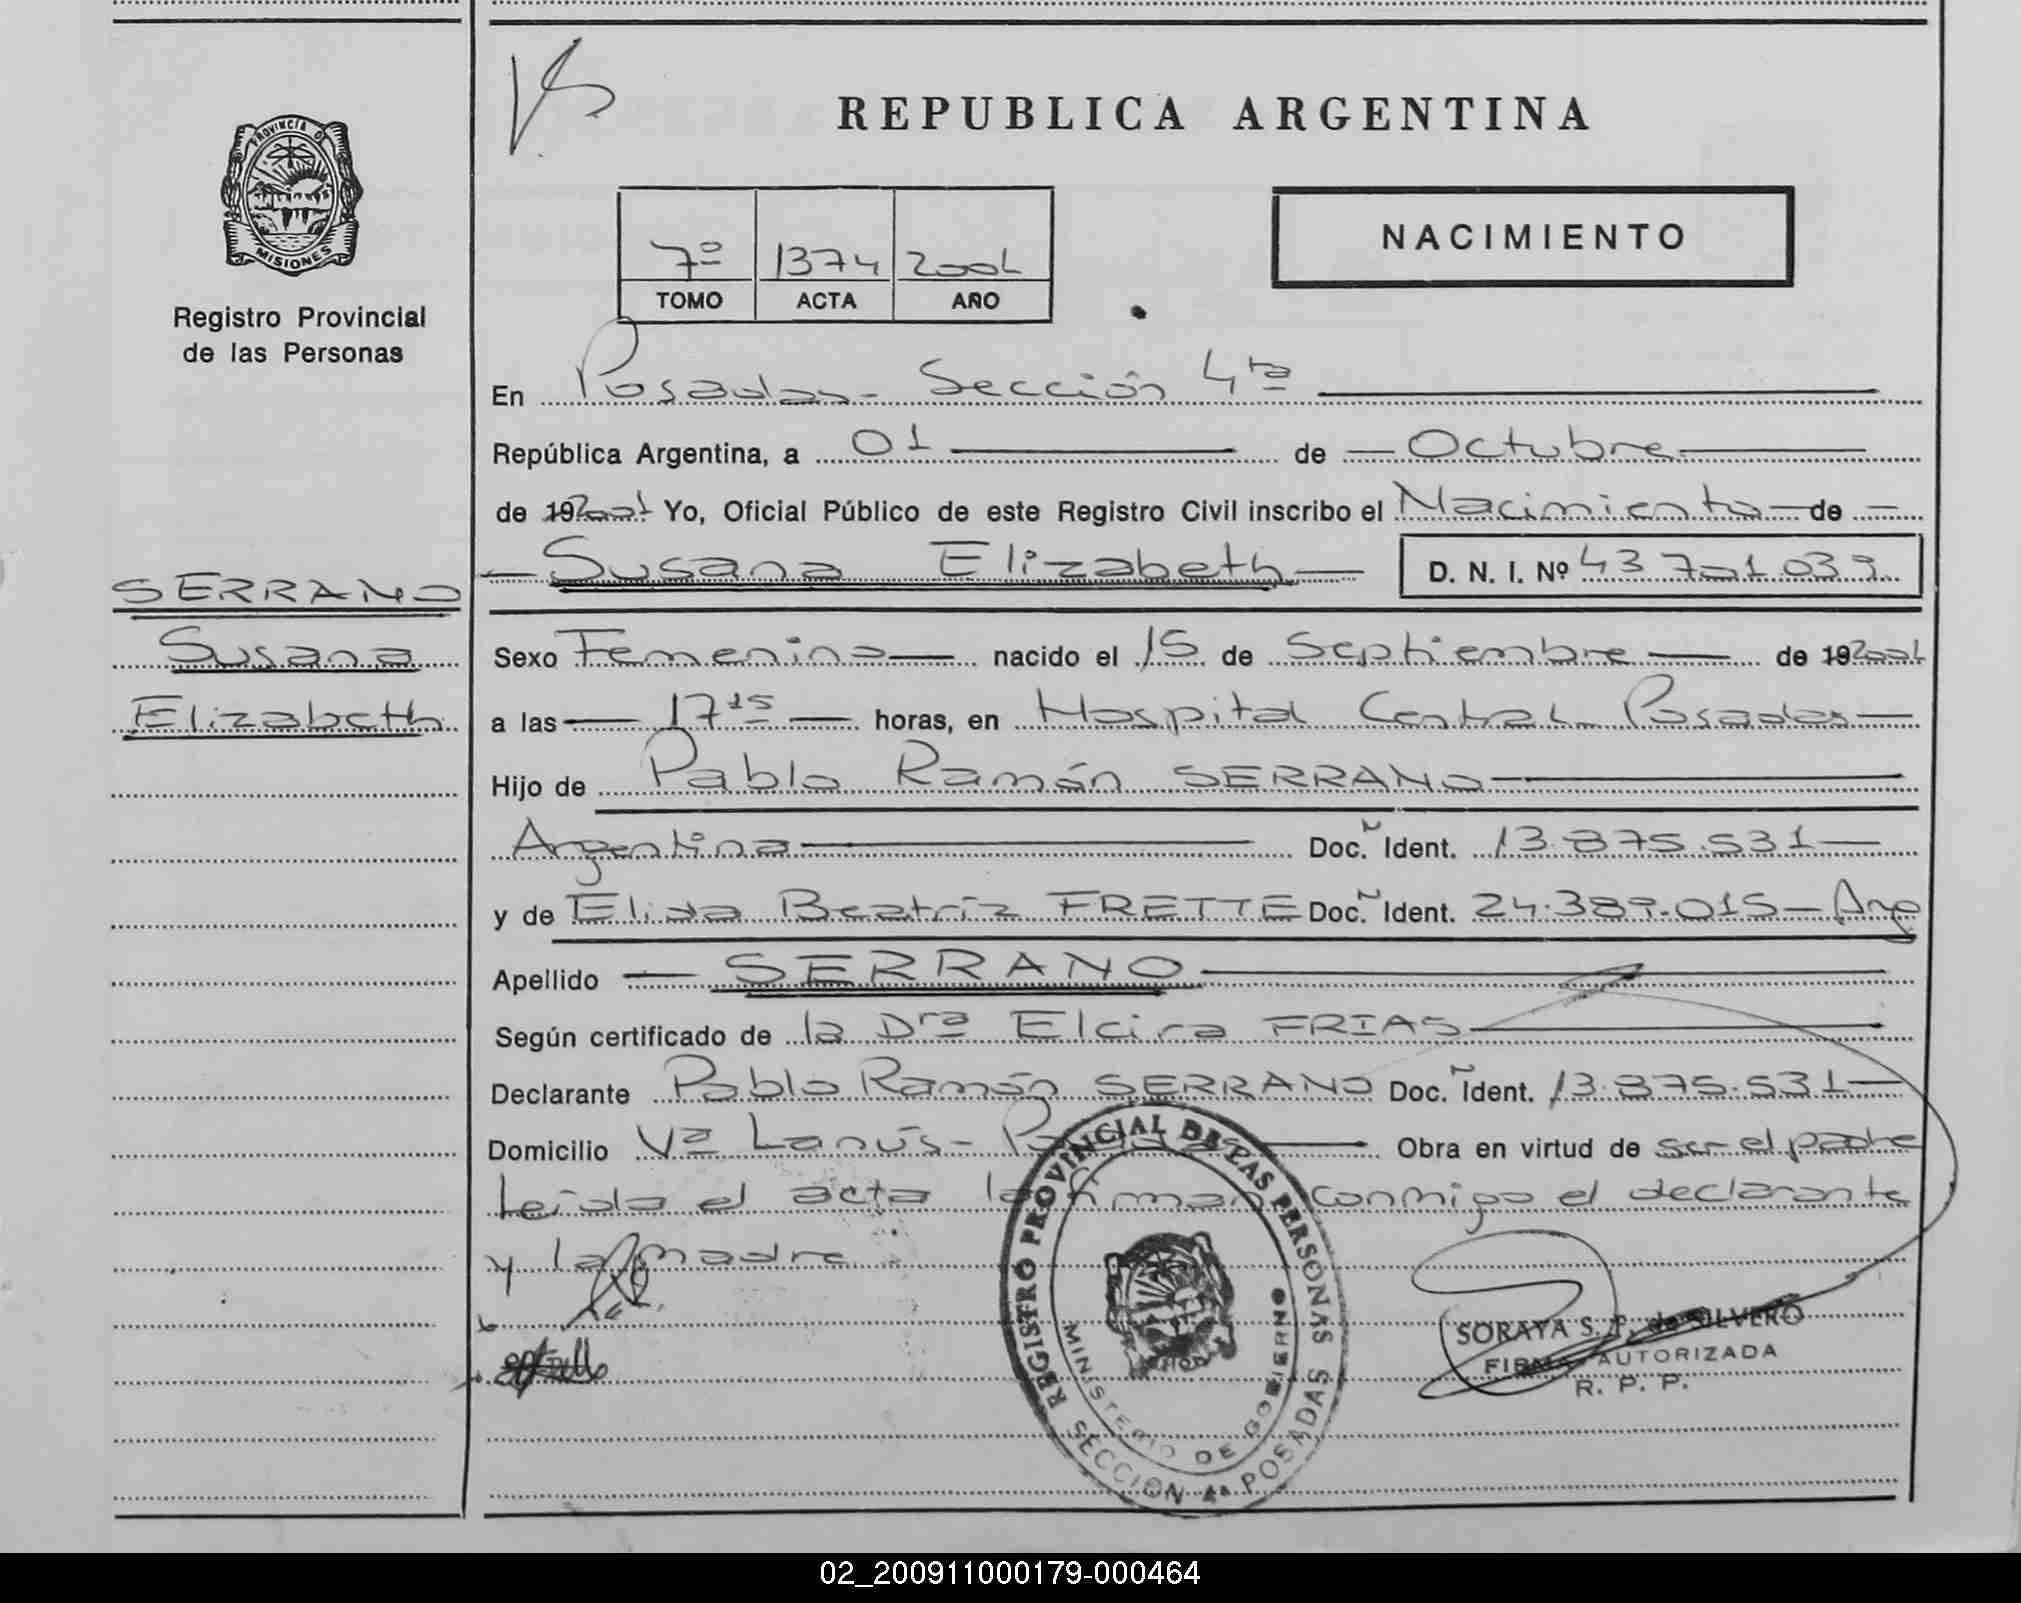 REPUBLICA ARGENTINA
PROVINCIA D
MISIONES
Registro Provincial
de las Personas
7º 1374 2001
TOMO ACTA AÑO
NACIMIENTO
En Posadas - Sección 4ta
República Argentina, a 01 de Octubre
de 192001 Yo, Oficial Público de este Registro Civil inscribo el Nacimiento de
Susana Elizabeth D. N. I. Nº 43 701 039
SERRANO
Susana
Elizabeth
Sexo Femenino nacido el 15 de Septiembre de 192001
a las 17 15 horas, en Hospital Central Posadas
Hijo de Pablo Ramón SERRANO
Argentina Doc. Ident. 13.875.531
y de Elida Beatríz FRETTE Doc. Ident. 24.389.015 - Arg
Apellido SERRANO
Según certificado de la Dra Elcira FRIAS
Declarante Pablo Ramón SERRANO Doc. Ident. 13.875.531
Domicilio Va Lanús - Obra en virtud de ser el padre
Leída el acta la firman conmigo el declarante
y la madre
REGISTRO PROVINCIAL DE LAS PERSONAS
MINISTERIO DE GOBIERNO
SECCION 4a POSADAS
SORAYA S. F. de SILVERO
FIRMA AUTORIZADA
R. P. P.
02_200911000179-000464